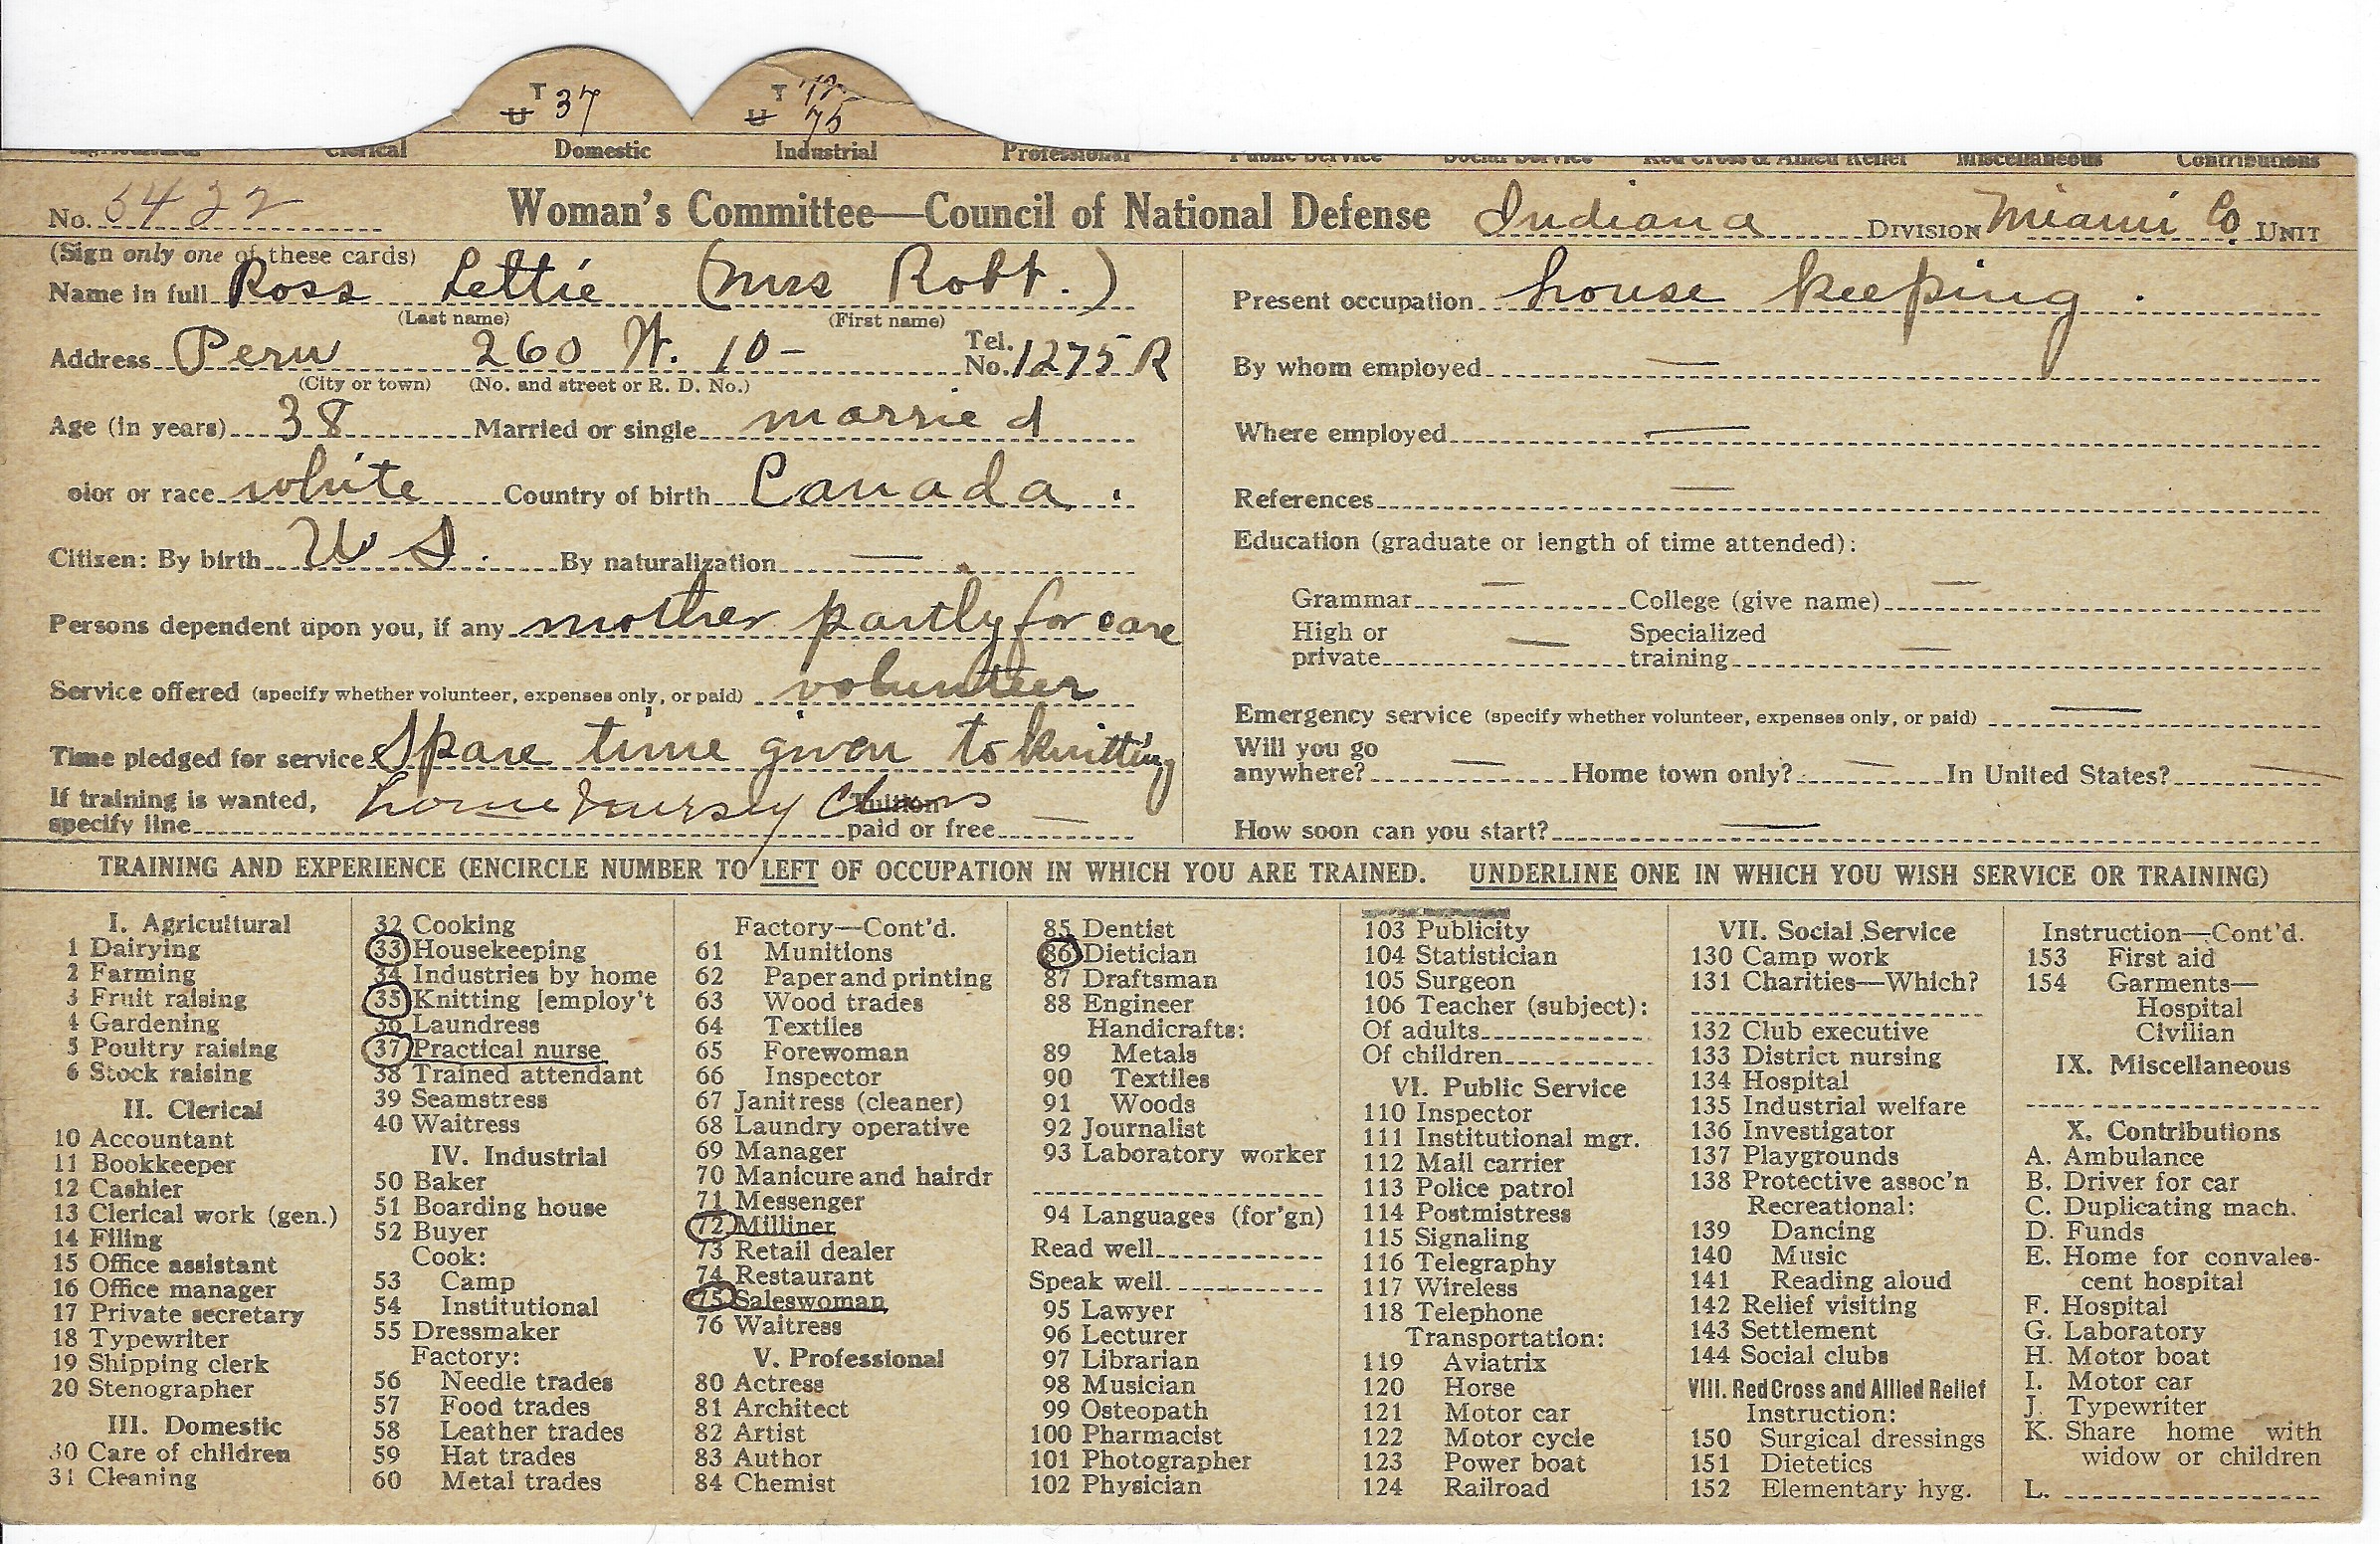 T 37 T 72
U U 75
Clerical Domestic Industrial Professional Public Service Social Service Red Cross & Allied Relief Miscellaneous Contributions
No. 5422 Woman's Committee—Council of National Defense Indiana DIVISION Miami Co. UNIT
(Sign only one of these cards)
Name in full Ross Lettie (Mrs Robt.)
(Last name) (First name)
Address Peru 260 W. 10 - Tel. No. 1275 R
(City or town) (No. and street or R. D. No.)
Age (in years) 38 Married or single married
olor or race white Country of birth Canada.
Citizen: By birth U S. By naturalization —
Persons dependent upon you, if any mother partly for care
Service offered (specify whether volunteer, expenses only, or paid) volunteer
Time pledged for service Spare time given to knitting
If training is wanted, specify line home nursey Class Tuition paid or free —
Present occupation house keeping.
By whom employed —
Where employed —
References —
Education (graduate or length of time attended):
Grammar — College (give name) —
High or private — Specialized training —
Emergency service (specify whether volunteer, expenses only, or paid) —
Will you go anywhere? — Home town only? — In United States? —
How soon can you start? —
TRAINING AND EXPERIENCE (ENCIRCLE NUMBER TO LEFT OF OCCUPATION IN WHICH YOU ARE TRAINED. UNDERLINE ONE IN WHICH YOU WISH SERVICE OR TRAINING)
I. Agricultural
1 Dairying
2 Farming
3 Fruit raising
4 Gardening
5 Poultry raising
6 Stock raising
II. Clerical
10 Accountant
11 Bookkeeper
12 Cashier
13 Clerical work (gen.)
14 Filing
15 Office assistant
16 Office manager
17 Private secretary
18 Typewriter
19 Shipping clerk
20 Stenographer
III. Domestic
30 Care of children
31 Cleaning
32 Cooking
33 Housekeeping
34 Industries by home
35 Knitting [employ't
36 Laundress
37 Practical nurse
38 Trained attendant
39 Seamstress
40 Waitress
IV. Industrial
50 Baker
51 Boarding house
52 Buyer
Cook:
53 Camp
54 Institutional
55 Dressmaker
Factory:
56 Needle trades
57 Food trades
58 Leather trades
59 Hat trades
60 Metal trades
Factory—Cont'd.
61 Munitions
62 Paper and printing
63 Wood trades
64 Textiles
65 Forewoman
66 Inspector
67 Janitress (cleaner)
68 Laundry operative
69 Manager
70 Manicure and hairdr
71 Messenger
72 Milliner
73 Retail dealer
74 Restaurant
75 Saleswoman
76 Waitress
V. Professional
80 Actress
81 Architect
82 Artist
83 Author
84 Chemist
85 Dentist
86 Dietician
87 Draftsman
88 Engineer
Handicrafts:
89 Metals
90 Textiles
91 Woods
92 Journalist
93 Laboratory worker
94 Languages (for'gn)
Read well
Speak well
95 Lawyer
96 Lecturer
97 Librarian
98 Musician
99 Osteopath
100 Pharmacist
101 Photographer
102 Physician
103 Publicity
104 Statistician
105 Surgeon
106 Teacher (subject):
Of adults
Of children
VI. Public Service
110 Inspector
111 Institutional mgr.
112 Mail carrier
113 Police patrol
114 Postmistress
115 Signaling
116 Telegraphy
117 Wireless
118 Telephone
Transportation:
119 Aviatrix
120 Horse
121 Motor car
122 Motor cycle
123 Power boat
124 Railroad
VII. Social Service
130 Camp work
131 Charities—Which?
132 Club executive
133 District nursing
134 Hospital
135 Industrial welfare
136 Investigator
137 Playgrounds
138 Protective assoc'n
Recreational:
139 Dancing
140 Music
141 Reading aloud
142 Relief visiting
143 Settlement
144 Social clubs
VIII. Red Cross and Allied Relief
Instruction:
150 Surgical dressings
151 Dietetics
152 Elementary hyg.
Instruction—Cont'd.
153 First aid
154 Garments—
Hospital
Civilian
IX. Miscellaneous
X. Contributions
A. Ambulance
B. Driver for car
C. Duplicating mach.
D. Funds
E. Home for convales-
cent hospital
F. Hospital
G. Laboratory
H. Motor boat
I. Motor car
J. Typewriter
K. Share home with
widow or children
L.